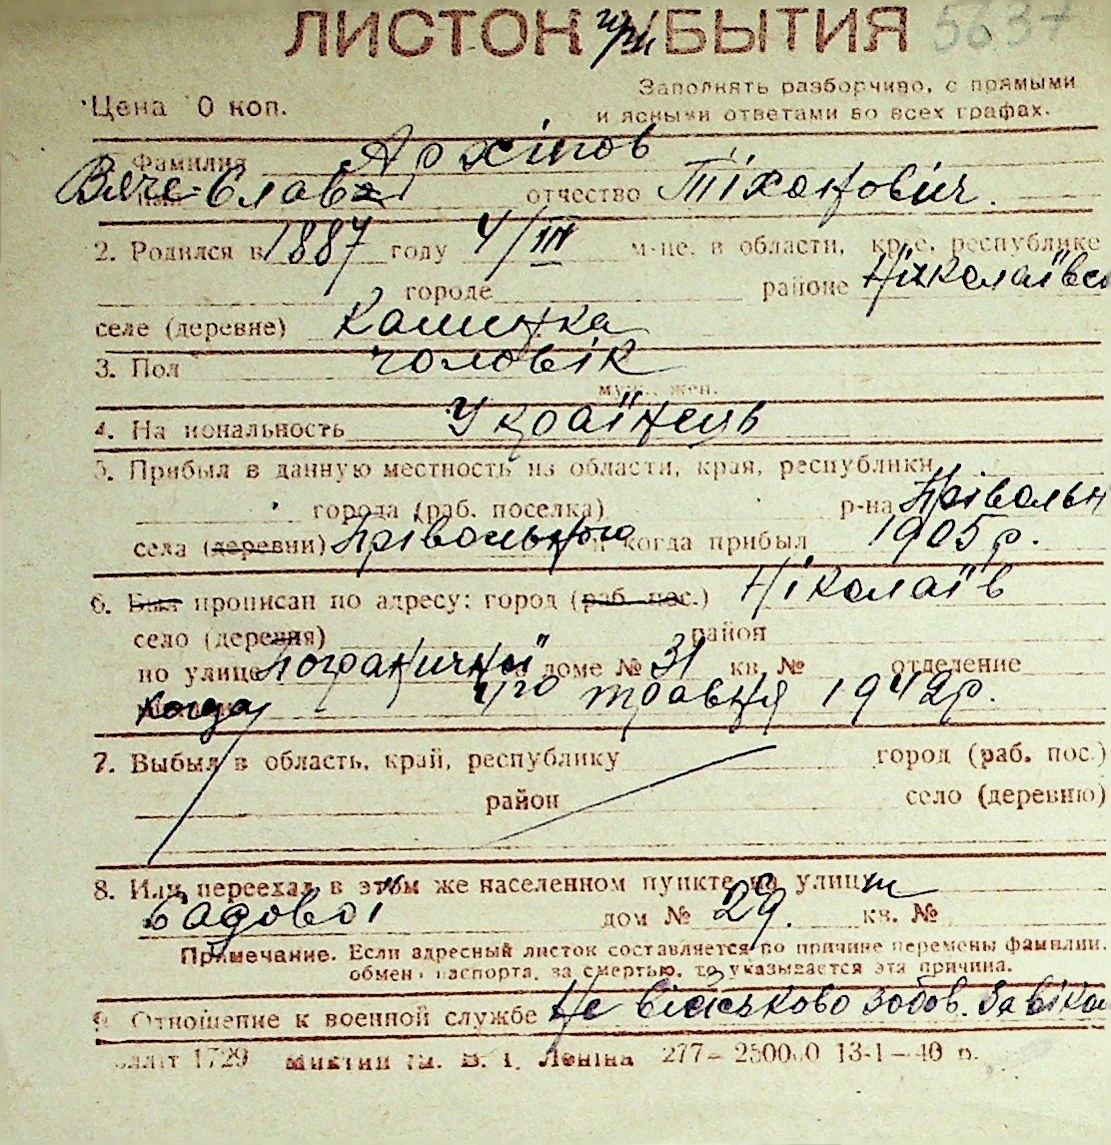 ЛИСТОК при УБЫТИЯ 5637
Заполнять разборчиво, с прямыми
Цена 0 коп.
и ясными ответами во всех графах.
Фамилия Архіпов
Вяче-слав отчество Тіханович.
2. Родился в 1887 году 4/III м-це, в области, крае, республике
городе районе Ніколаївсь
селе (деревне) Калинка
3. Пол чоловік
муж., жен.
4. На иональность Українець
5. Прибыл в данную местность из области, края, республики
города (раб. поселка) р-на Прівольн
села (деревни) Прівольного и когда прибыл 1905 р.
6. Был прописан по адресу: город (раб. пос.) Ніколаїв
село (деревня) район
по улице Пограничній доме № 31 кв. № отделение
когда 4го травня 1942р.
7. Выбыл в область, край, республику город (раб. пос.)
район село (деревню)
8. Или переехал в этом же населенном пункте на улицу
Садової дом № 29. кв. №
Примечание. Если адресный листок составляется по причине перемены фамилии,
обмена паспорта, за смертью, то указывается эта причина.
9. Отношение к военной службе Не військово зобов. За віком
1729 им. В. І. Леніна 277— 250000 13-1—40 р.